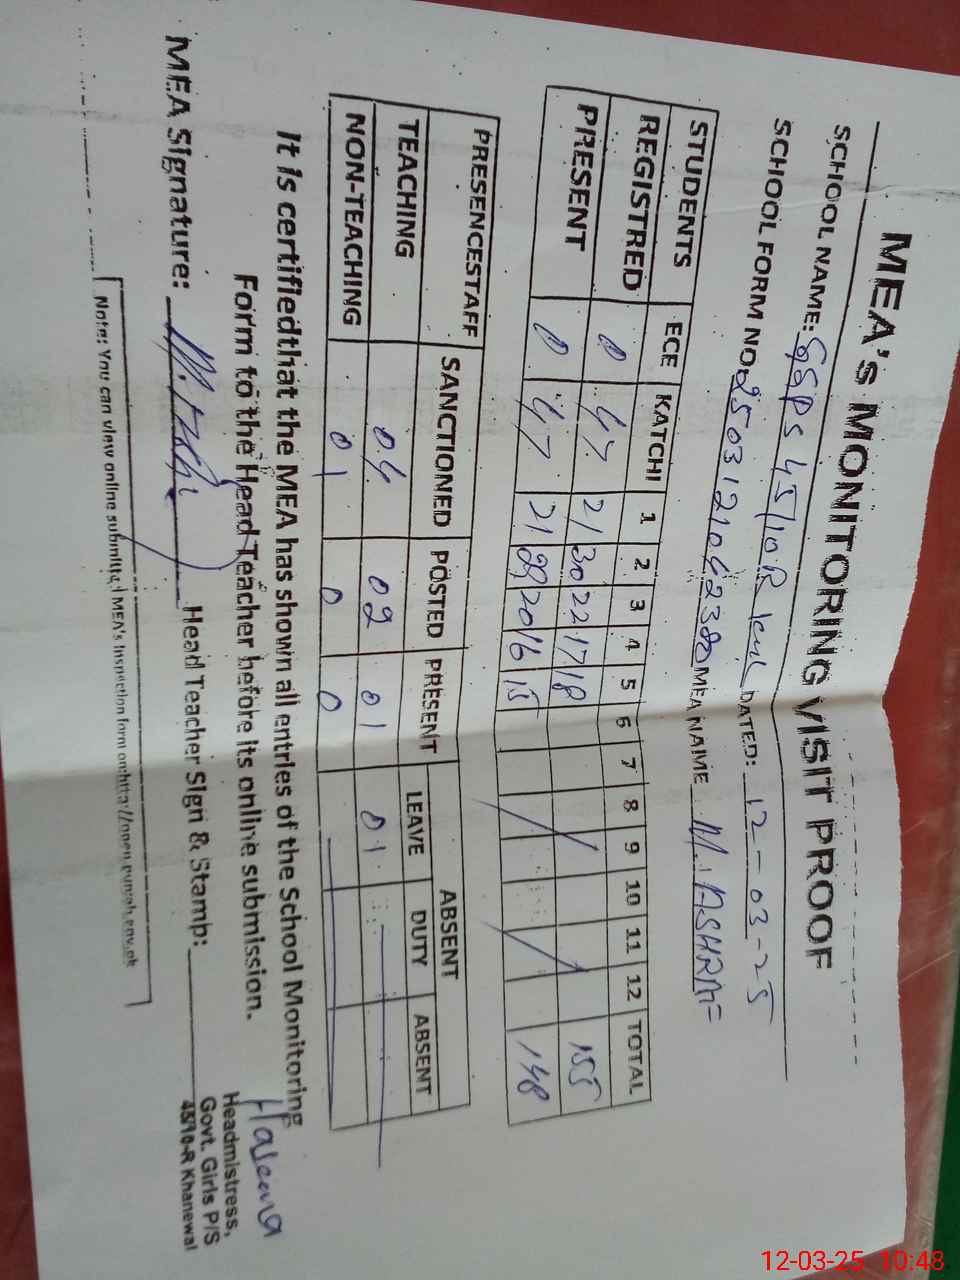 MEA'S MONITORING VISIT PROOF
SCHOOL NAME: GGPS 45/10R kwl DATED: 12-03-25
SCHOOL FORM NO: MEA NAME M. ASHRAF
STUDENTS ECE KATCHI 1 2 3 4 5 6 7 8 9 10 11 12 TOTAL
REGISTRED 0 47 21 30 22 17 18 155
PRESENT 0 47 21 29 20 16 15 148
PRESENCESTAFF SANCTIONED POSTED PRESENT ABSENT
LEAVE DUTY ABSENT
TEACHING 04 02 01 01
NON-TEACHING 01 0 0
It is certifiedthat the MEA has shown all entries of the School Monitoring
Form to the Head Teacher before its online submission.
MEA Signature: Head Teacher Sign & Stamb:
Haleema
Headmistress,
Govt. Girls P/S
45/10-R Khanewal
Note: You can view online submitted MEA's Inspection form on:http://open.punjab.gov.pk
12-03-25 10:48